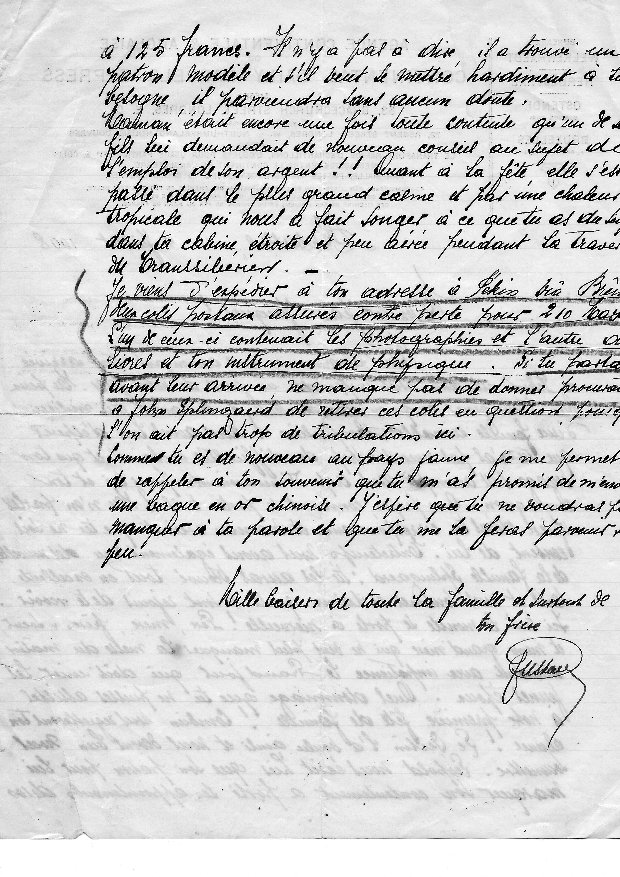 à 125 francs. Il n'y a pas à dire il a trouvé un
patron modèle et s'il veut se mettre hardiment à
besogne, il parviendra sans aucun doute.
Maman était encore une fois toute contente qu'un de
fils lui demandait de nouveau conseil au sujet de
l'emploi de son argent !! Quant à la fête elle s'est
passé dans le plus grand calme et par une chaleur
tropicale qui nous a fait songer à ce que tu as du
dans ta cabine étroite et peu aérée pendant la
du Transsibérien. _
Je viens d'expédier à ton adresse à Pékin via
deux colis postaux assurés contre perte pour 210
L'un de ceux-ci contenait les photographies et l'autre
livres et ton instrument de physique. Si tu
avant leur arrivée ne manque pas de donner
à John Splingaerd de retirer ces colis en question,
l'on ait pas trop de tribulations ici.
Comme tu es de nouveau au pays jaune je me permet
de rappeler à ton souvenir que tu m'as promis de
une bague en or chinoise. J'espère que tu ne voudras
manquer à ta parole et que tu me la feras parvenir
peu.
Mille baisers de toute la famille et surtout de
ton frère